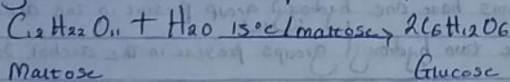 C₁₂H₂₂O₁₁ + H₂O 15°c/maltose → 2C₆H₁₂O₆
Maltose Glucose